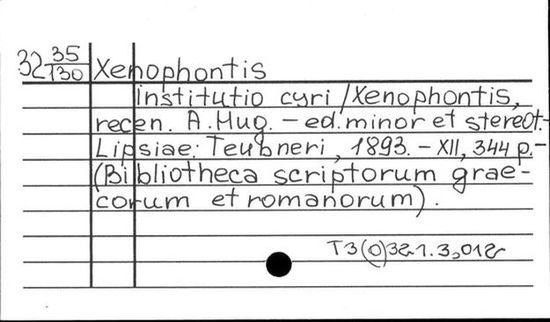 32 35/130 Xenophontis
Institutio cyri / Xenophontis,
recen. A. Mug. – ed. minor et stereot. –
Lipsiae: Teubneri, 1893. – XII, 344 p. –
(Bibliotheca scriptorum grae-
corum et romanorum).
T3(0)32-1.3,012